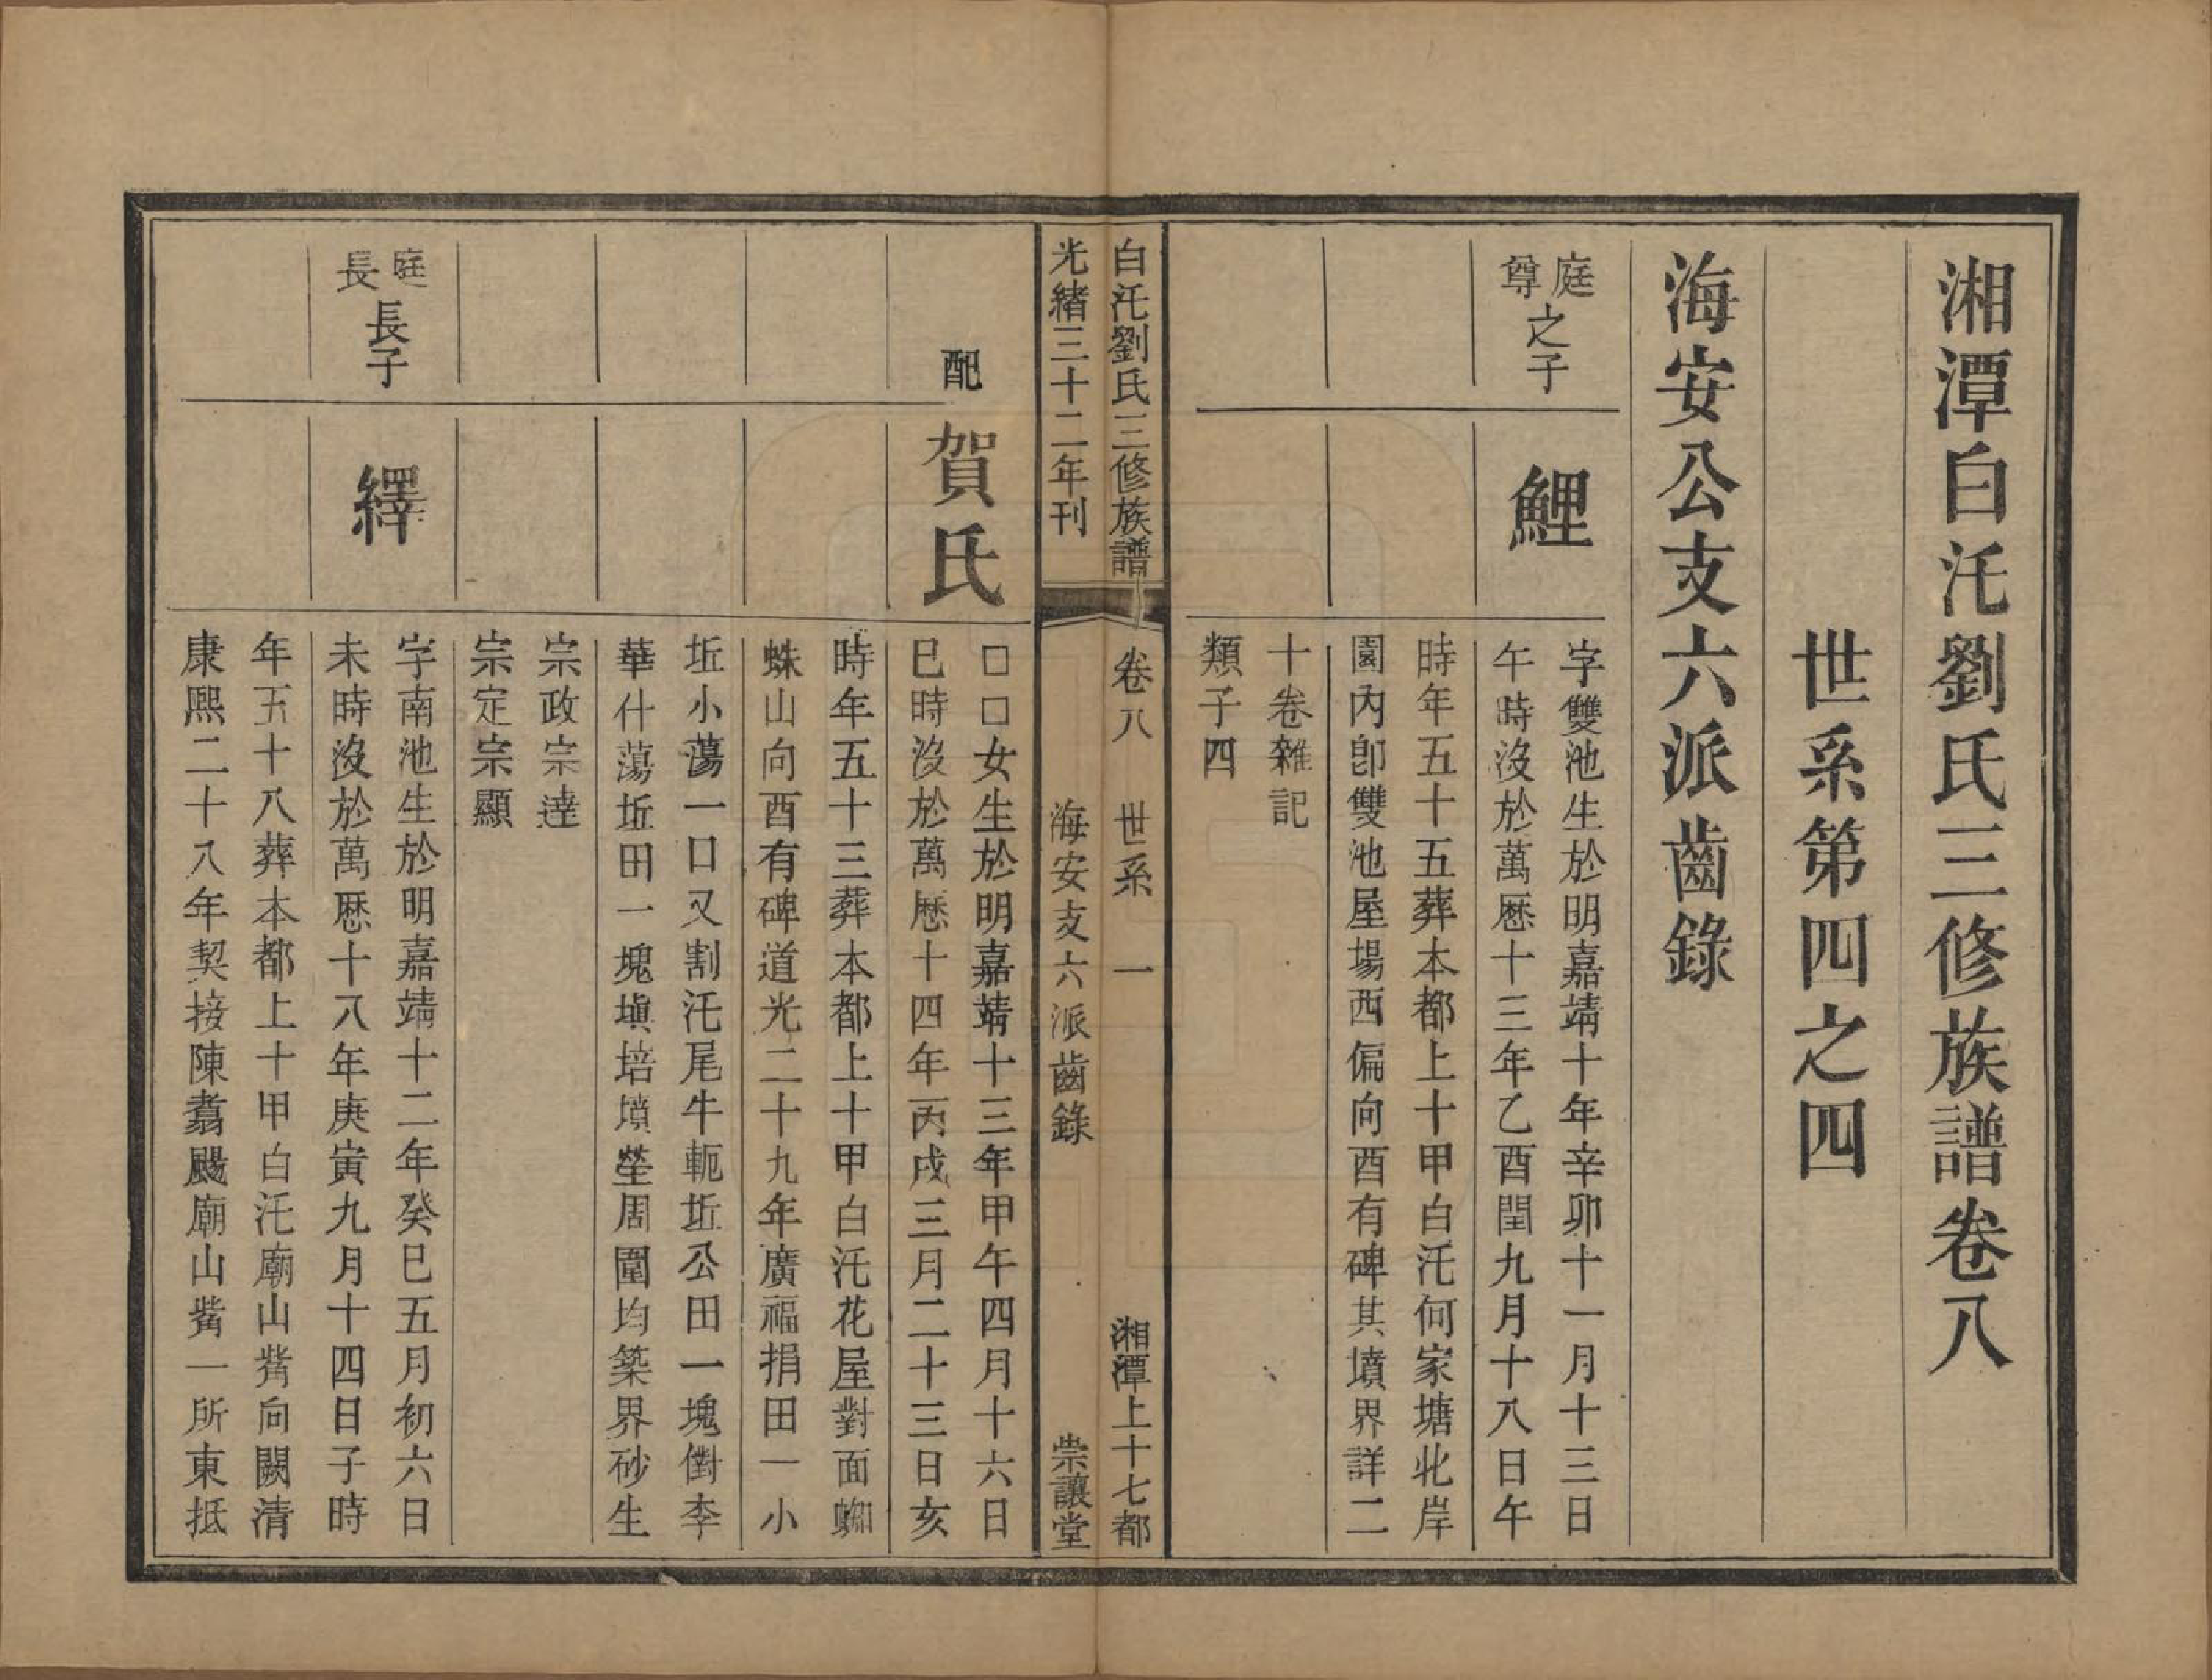 湘潭白汑劉氏三修族譜卷八
世系第四之四
海安公支六派齒錄
庭尊之子
鯉
字雙池生於明嘉靖十年辛卯十一月十三日
午時沒於萬厯十三年乙酉閏九月十八日午
時年五十五葬本都上十甲白汑何家塘北岸
園內卽雙池屋場西偏向酉有碑其墳界詳二
十卷雜記
類子四
白汑劉氏三修族譜
卷八
世系
一
湘潭上十七都
光緒三十二年刊
海安支六派齒錄
崇讓堂
配
賀氏
□□女生於明嘉靖十三年甲午四月十六日
巳時沒於萬厯十四年丙戌三月二十三日亥
時年五十三葬本都上十甲白汑花屋對面蜘
蛛山向酉有碑道光二十九年廣福捐田一小
坵小蕩一口又割汑尾牛軛坵公田一塊儹李
華什蕩坵田一塊塡培墳塋周圍均築界砂生
宗政宗達
宗定宗顯
庭長長子
繹
字南池生於明嘉靖十二年癸巳五月初六日
未時沒於萬厯十八年庚寅九月十四日子時
年五十八葬本都上十甲白汑廟山觜向闕清
康熙二十八年契接陳翥颺廟山觜一所東抵